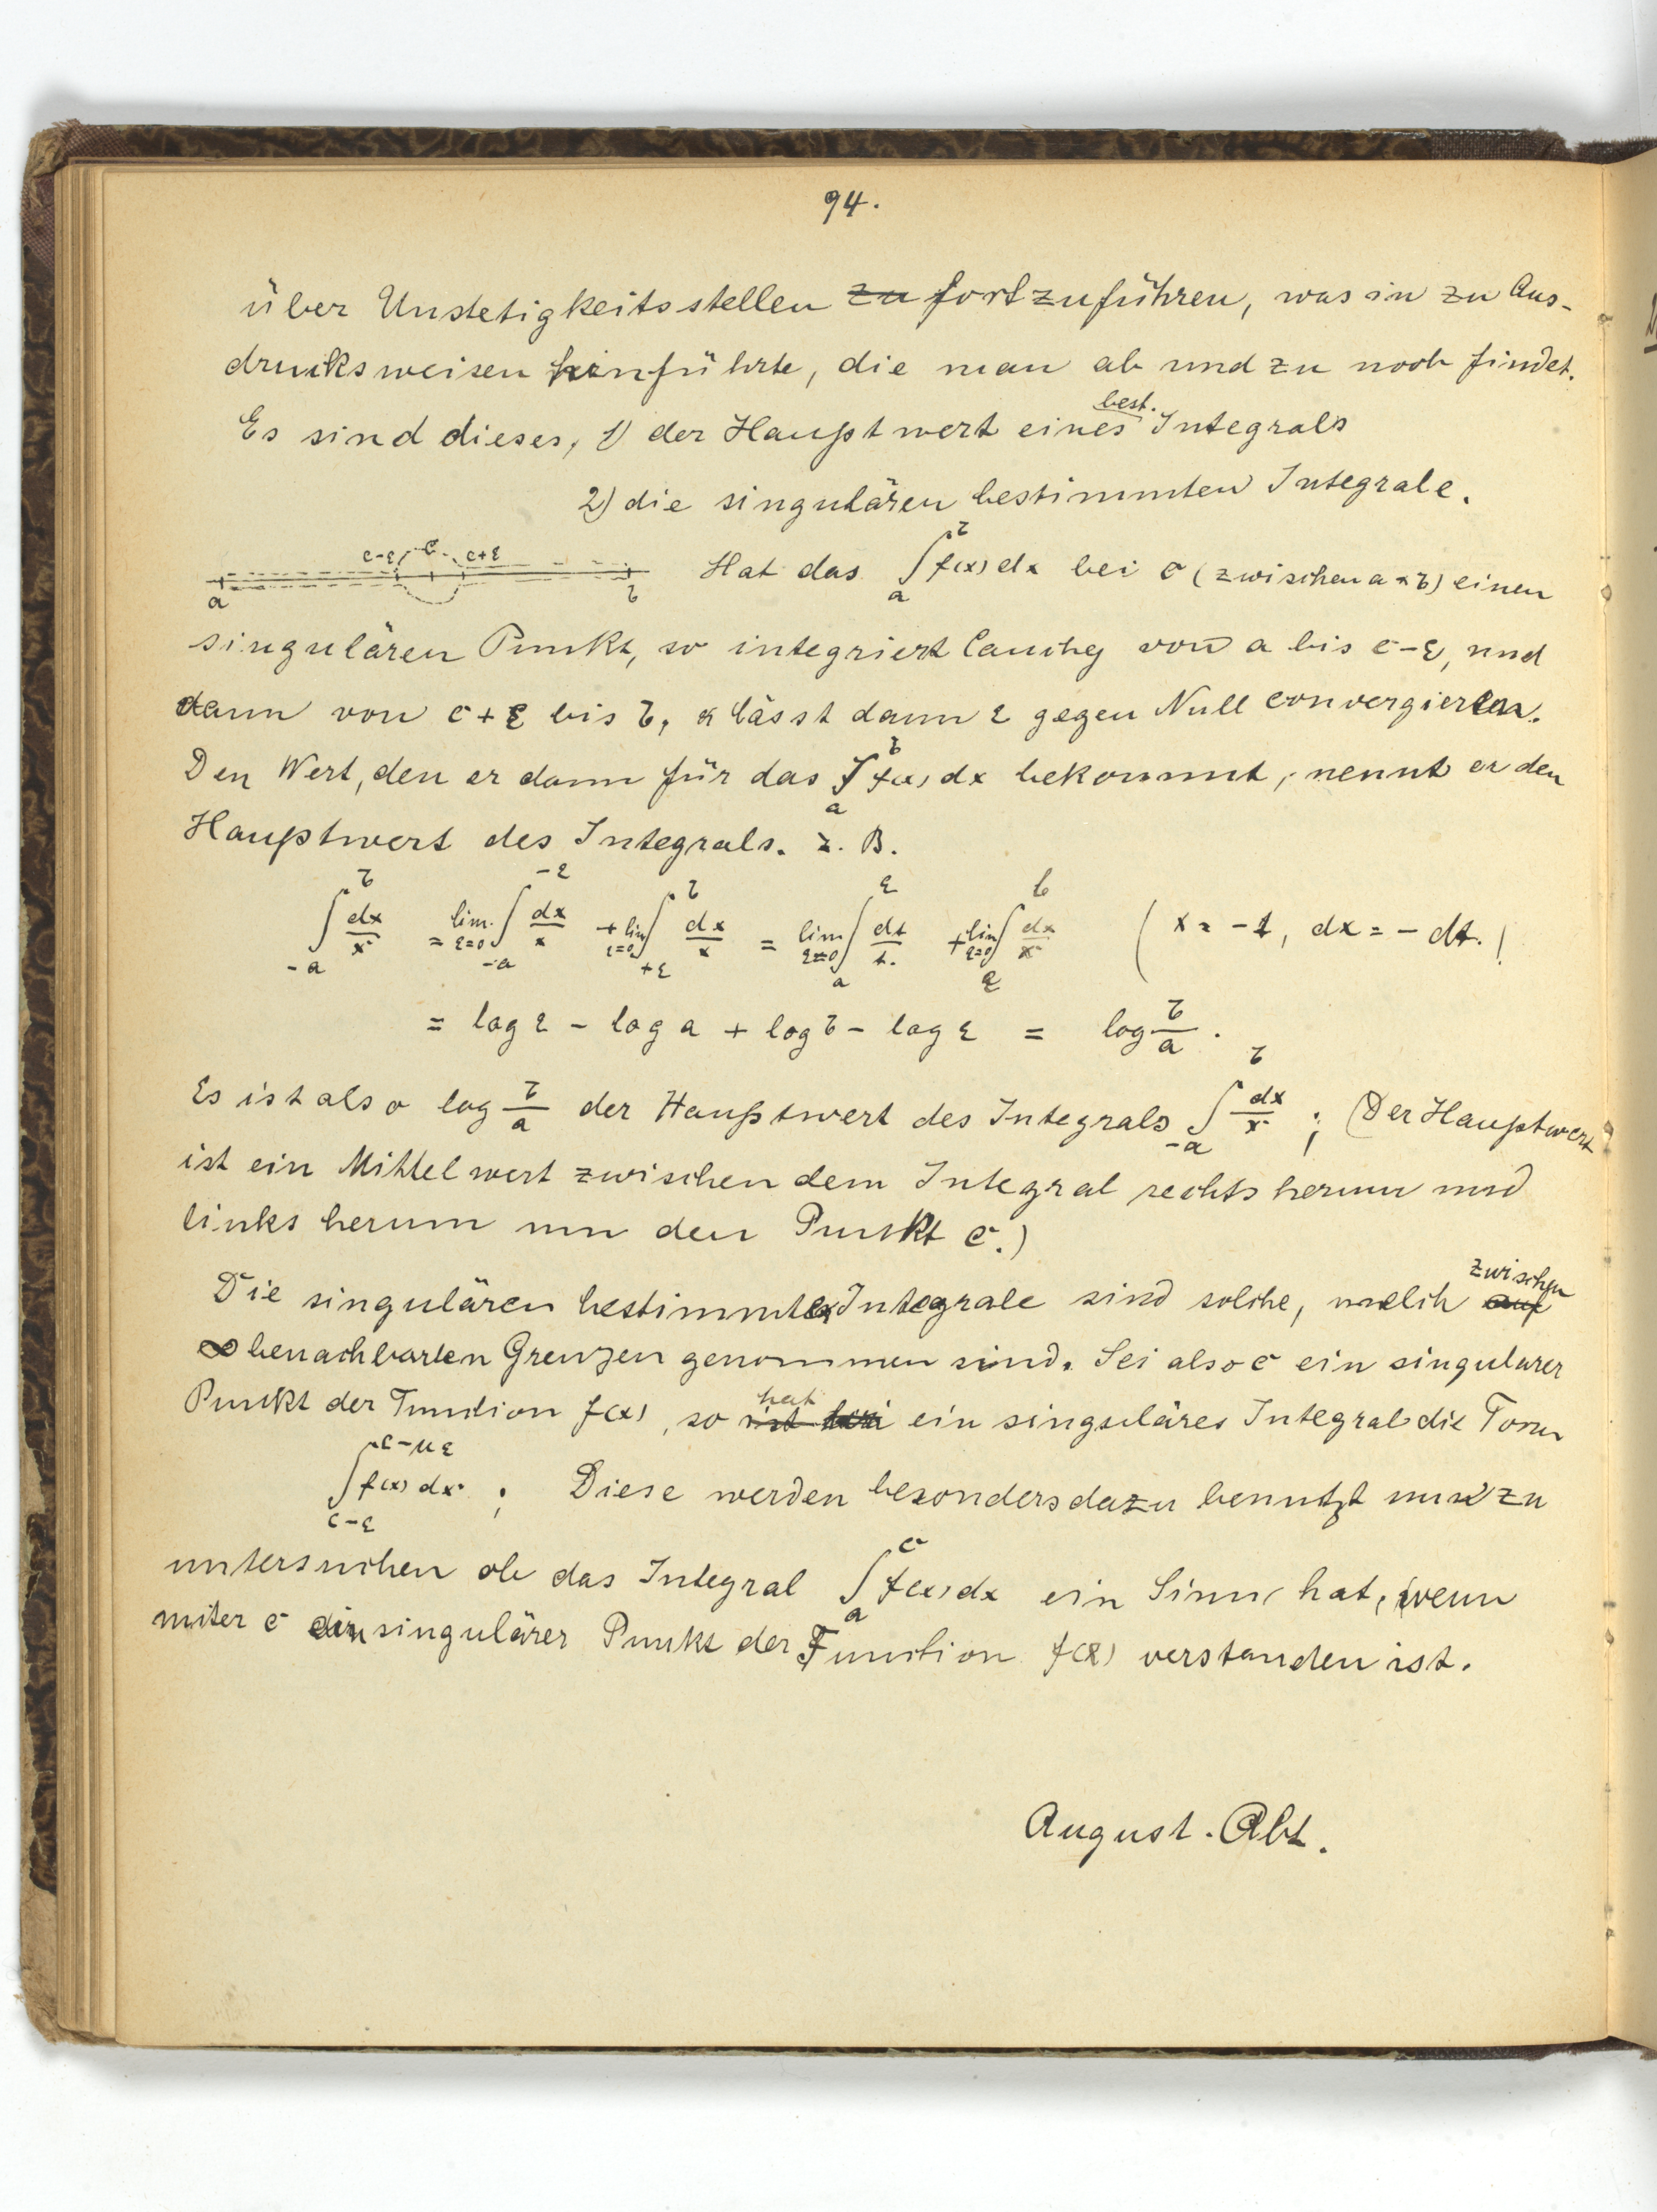 94.
über Unstetigkeitsstellen ~~zu~~ fortzuführen, was in zu Aus-
drucksweisen hinführte, die man ab und zu noch findet.
Es sind dieses, 1) der Hauptwert eines best. Integrals
2) die singulären bestimmten Integrale.
a c-ε c c+ε b Hat das ∫_a^b f(x) dx bei c (zwischen a & b) einen
singulären Punkt, so integriert Cauchy von a bis c-ε, und
dann von c+ε bis b, & lässt dann ε gegen Null convergieren.
Den Wert, den er dann für das ∫_a^b f(x) dx bekommt, nennt er den
Hauptwert des Integrals. z. B.
∫_{-a}^b dx/x = lim_{ε=0} ∫_{-a}^{-ε} dx/x + lim_{ε=0} ∫_{+ε}^b dx/x = lim_{ε=0} ∫_a^ε dt/t + lim_{ε=0} ∫_ε^b dx/x (x = -t, dx = -dt.)
= log ε - log a + log b - log ε = log b/a.
Es ist also log b/a der Hauptwert des Integrals ∫_{-a}^b dx/x; (Der Hauptwert
ist ein Mittelwert zwischen dem Integral rechts herum und
links herum um den Punkt c.)
Die singulären bestimmten Integrale sind solche, welch ~~auf~~ zwischen
∞ benachbarten Grenzen genommen sind. Sei also c ein singulärer
Punkt der Function f(x), so ~~ist bei~~ hat ein singuläres Integral die Form
∫_{c-ε}^{c-με} f(x) dx; Diese werden besonders dazu benutzt um zu
untersuchen ob das Integral ∫_a^c f(x) dx ein Sinn hat, wenn
unter c ein singulärer Punkt der Function f(x) verstanden ist.
August. Abt.